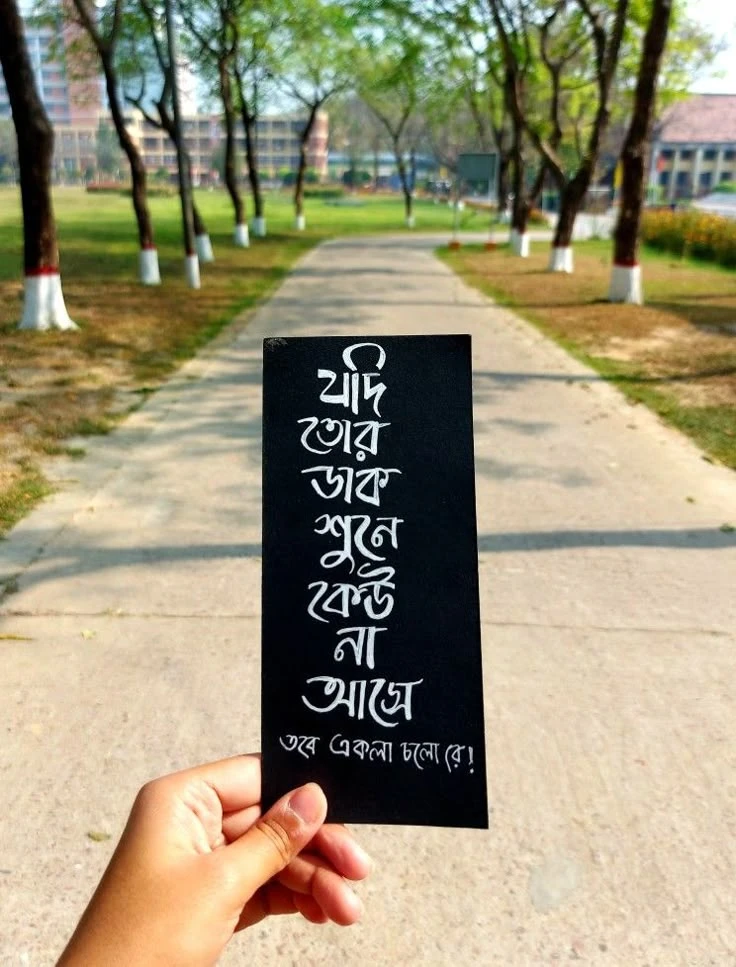 যদি
তোর
ডাক
শুনে
কেউ
না
আসে
তবে একলা চলো রে!